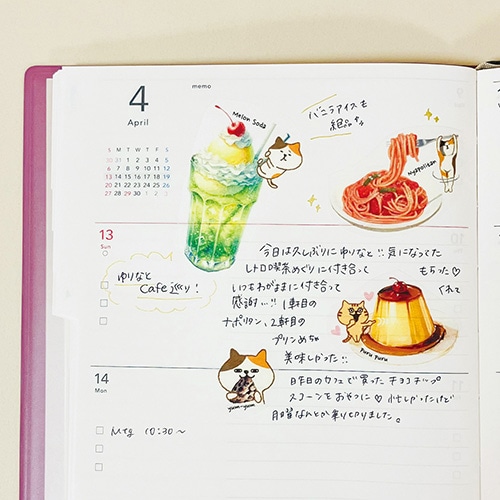 4
April
memo
S M T W T F S
30 31 1 2 3 4 5
6 7 8 9 10 11 12
13 14 15 16 17 18 19
20 21 22 23 24 25 26
27 28 29 30
Melon Soda
バニラアイスも
絶品
Nyapolitan
13
Sun
ゆりなと
Cafe巡り!
今日は久しぶりにゆりなと!! 気になってた
レトロ喫茶めぐりに付き合って もらった♡
いつもわがままに付き合って くれて
感謝!!! 1軒目の
ナポリタン、2軒目の
プリンめちゃ
美味しかった!!
Puru Puru
14
Mon
yum-yum
昨日のカフェで買ったチョコチップ
スコーンをおやつに♡ 忙しかったけど
月曜なんとか乗りきりました。
Mtg 10:30~